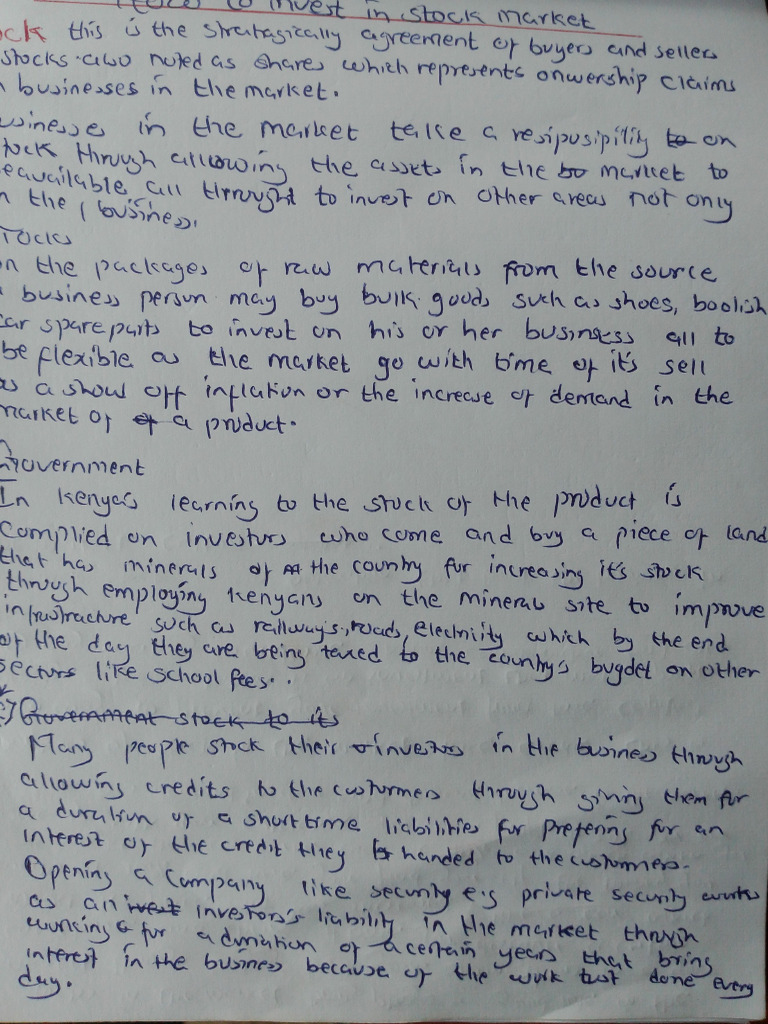 to invest in stock market
ck this is the strategically agreement of buyers and sellers
stocks also noted as shares which represents onwership claims
businesses in the market.
usinesses in the market take a resipusipility to on
tock through allowing the assets in the to market to
eavailable all throught to invest on other areas not only
n the business.
Tocks
on the packages of raw materials from the source
a business person may buy bulk goods such as shoes, boolish
car spareparts to invest on his or her businsess all to
be flexible as the market go with time of it's sell
as a show off inflation or the increase of demand in the
market of of a product.
Government
In Kenya's learning to the stock of the product is
Complied on investors who come and buy a piece of land
that has minerals of the country for increasing it's stock
through employing kenyans on the minerals site to improve
infrustracture such as railways, roads, Electricity which by the end
of the day they are being taxed to the country's bugdet on other
sectors like school fees..
Government stock to its
Many people stock their investors in the business through
allowing credits to the custormers through giving them for
a duration of a short time liabilities for prefering for an
interest of the credit they handed to the customers.
Opening a Company like security e.g private security works
as an invest investors's liability in the market through
working for a duration of a certain years that bring
interest in the business because of the work done every
day.